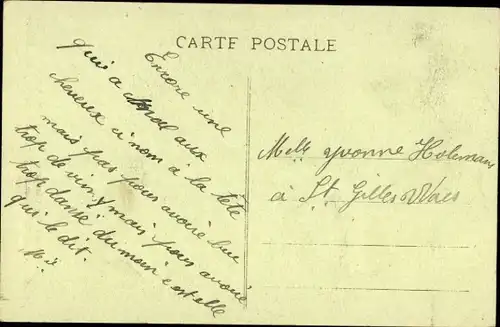 CARTE POSTALE
Encore une
qui a mal aux
cheveux si non à la tête
mais pas pour avoire bue
trop de vin, mais pour avoire
trop dansé du moin c'est elle
qui le dit.
Melle Yvonne Holeman
à St Gilles-Waes